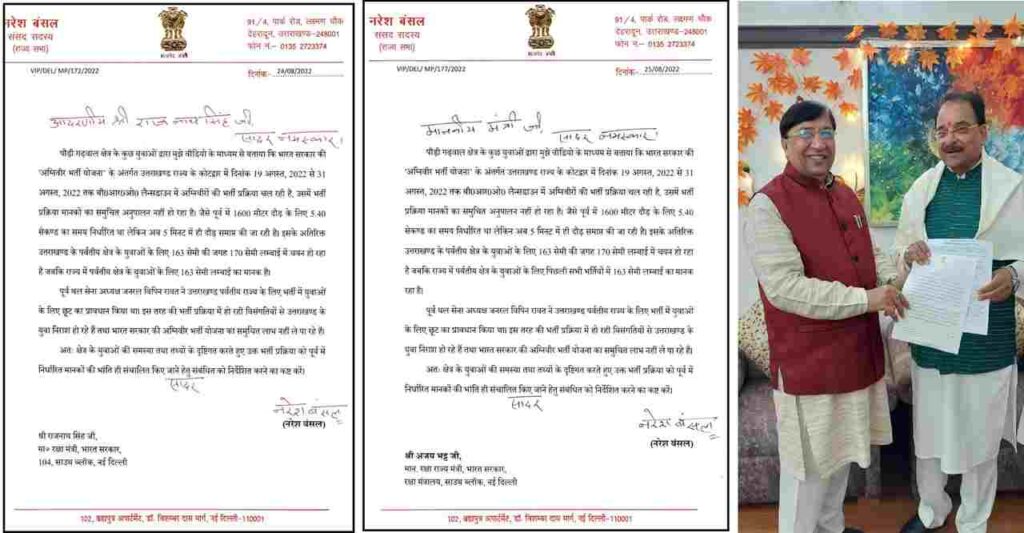 नरेश बंसल
संसद सदस्य
(राज्य सभा)
91/4, पार्क रोड, लक्ष्मण चौक
देहरादून, उत्तराखण्ड-248001
फोन न.– 0135 2723374
VIP/DEL/ MP/172/2022
दिनांक- 24/08/2022
आदरणीय श्री राजनाथ सिंह जी,
सादर नमस्कार।
पौड़ी गढ़वाल क्षेत्र के कुछ युवाओं द्वारा मुझे वीडियो के माध्यम से बताया कि भारत सरकार की
'अग्निवीर भर्ती योजना' के अंतर्गत उत्तराखण्ड राज्य के कोटद्वार में दिनांक 19 अगस्त, 2022 से 31
अगस्त, 2022 तक बी0आर0ओ0 लैन्सडाउन में अग्निवीरों की भर्ती प्रक्रिया चल रही है, उसमें भर्ती
प्रक्रिया मानकों का समुचित अनुपालन नहीं हो रहा है। जैसे पूर्व में 1600 मीटर दौड़ के लिए 5.40
सेकण्ड का समय निर्धारित था लेकिन अब 5 मिनट में ही दौड़ समाप्त की जा रही है। इसके अतिरिक्त
उत्तराखण्ड के पर्वतीय क्षेत्र के युवाओं के लिए 163 सेमी की जगह 170 सेमी लम्बाई में चयन हो रहा
है जबकि राज्य में पर्वतीय क्षेत्र के युवाओं के लिए 163 सेमी लम्बाई का मानक है।
पूर्व थल सेना अध्यक्ष जनरल विपिन रावत ने उत्तराखण्ड पर्वतीय राज्य के लिए भर्ती में युवाओं
के लिए छूट का प्रावधान किया था। इस तरह की भर्ती प्रक्रिया में हो रही विसंगतियों से उत्तराखण्ड के
युवा निराश हो रहे हैं तथा भारत सरकार की अग्निवीर भर्ती योजना का समुचित लाभ नहीं ले पा रहे हैं।
अतः क्षेत्र के युवाओं की समस्या तथा तथ्यों के दृष्टिगत करते हुए उक्त भर्ती प्रक्रिया को पूर्व में
निर्धारित मानकों की भांति ही संचालित किए जाने हेतु संबंधित को निर्देशित करने का कष्ट करें।
सादर
नरेश बंसल
(नरेश बंसल)
श्री राजनाथ सिंह जी,
मा० रक्षा मंत्री, भारत सरकार,
104, साउथ ब्लॉक, नई दिल्ली
102, ब्रह्मपुत्र अपार्टमेंट, डॉ. विशम्बर दास मार्ग, नई दिल्ली-110001
नरेश बंसल
संसद सदस्य
(राज्य सभा)
91/4, पार्क रोड, लक्ष्मण चौक
देहरादून, उत्तराखण्ड-248001
फोन न.– 0135 2723374
VIP/DEL/ MP/177/2022
दिनांक- 25/08/2022
माननीय मंत्री जी,
सादर नमस्कार।
पौड़ी गढ़वाल क्षेत्र के कुछ युवाओं द्वारा मुझे वीडियो के माध्यम से बताया कि भारत सरकार की
'अग्निवीर भर्ती योजना' के अंतर्गत उत्तराखण्ड राज्य के कोटद्वार में दिनांक 19 अगस्त, 2022 से 31
अगस्त, 2022 तक बी0आर0ओ0 लैन्सडाउन में अग्निवीरों की भर्ती प्रक्रिया चल रही है, उसमें भर्ती
प्रक्रिया मानकों का समुचित अनुपालन नहीं हो रहा है। जैसे पूर्व में 1600 मीटर दौड़ के लिए 5.40
सेकण्ड का समय निर्धारित था लेकिन अब 5 मिनट में ही दौड़ समाप्त की जा रही है। इसके अतिरिक्त
उत्तराखण्ड के पर्वतीय क्षेत्र के युवाओं के लिए 163 सेमी की जगह 170 सेमी लम्बाई में चयन हो रहा
है जबकि राज्य में पर्वतीय क्षेत्र के युवाओं के लिए पिछली सभी भर्तियों में 163 सेमी लम्बाई का मानक
रहा है।
पूर्व थल सेना अध्यक्ष जनरल विपिन रावत ने उत्तराखण्ड पर्वतीय राज्य के लिए भर्ती में युवाओं
के लिए छूट का प्रावधान किया था। इस तरह की भर्ती प्रक्रिया में हो रही विसंगतियों से उत्तराखण्ड के
युवा निराश हो रहे हैं तथा भारत सरकार की अग्निवीर भर्ती योजना का समुचित लाभ नहीं ले पा रहे हैं।
अतः क्षेत्र के युवाओं की समस्या तथा तथ्यों के दृष्टिगत करते हुए उक्त भर्ती प्रक्रिया को पूर्व में
निर्धारित मानकों की भांति ही संचालित किए जाने हेतु संबंधित को निर्देशित करने का कष्ट करें।
सादर
नरेश बंसल
(नरेश बंसल)
श्री अजय भट्ट जी,
मान. रक्षा राज्य मंत्री, भारत सरकार,
रक्षा मंत्रालय, साउथ ब्लॉक, नई दिल्ली
102, ब्रह्मपुत्र अपार्टमेंट, डॉ. विशम्बर दास मार्ग, नई दिल्ली-110001